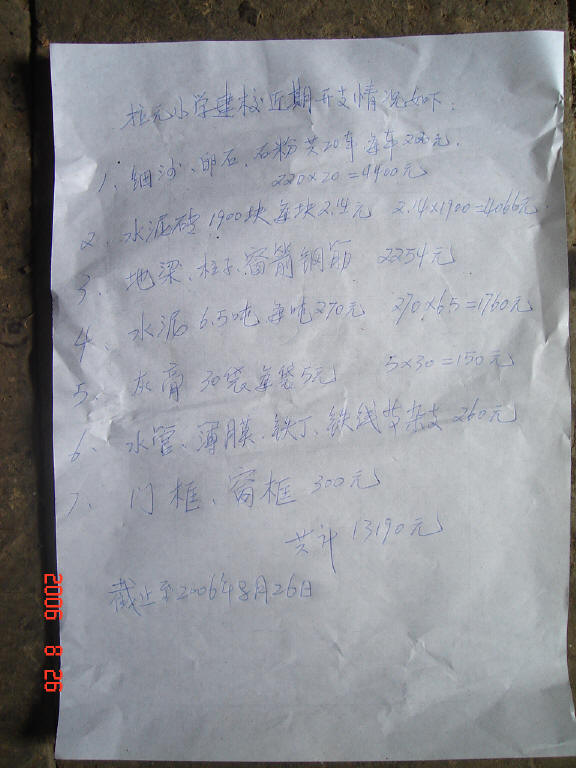 拉元小学建校近期开支情况如下:
1、细沙、卵石、石粉共20车每车220元.
220×20=4400元
2、水泥砖1900块每块2.14元 2.14×1900=4066元
3、地梁、柱子、窗箭钢筋 2254元
4、水泥6.5吨每吨270元 270×6.5=1760元
5、灰膏30袋每袋5元 5×30=150元
6、水管、薄膜、铁丁、铁线等杂支260元
7、门框、窗框300元
共计13190元
截止至2006年8月26日
2006 8 26